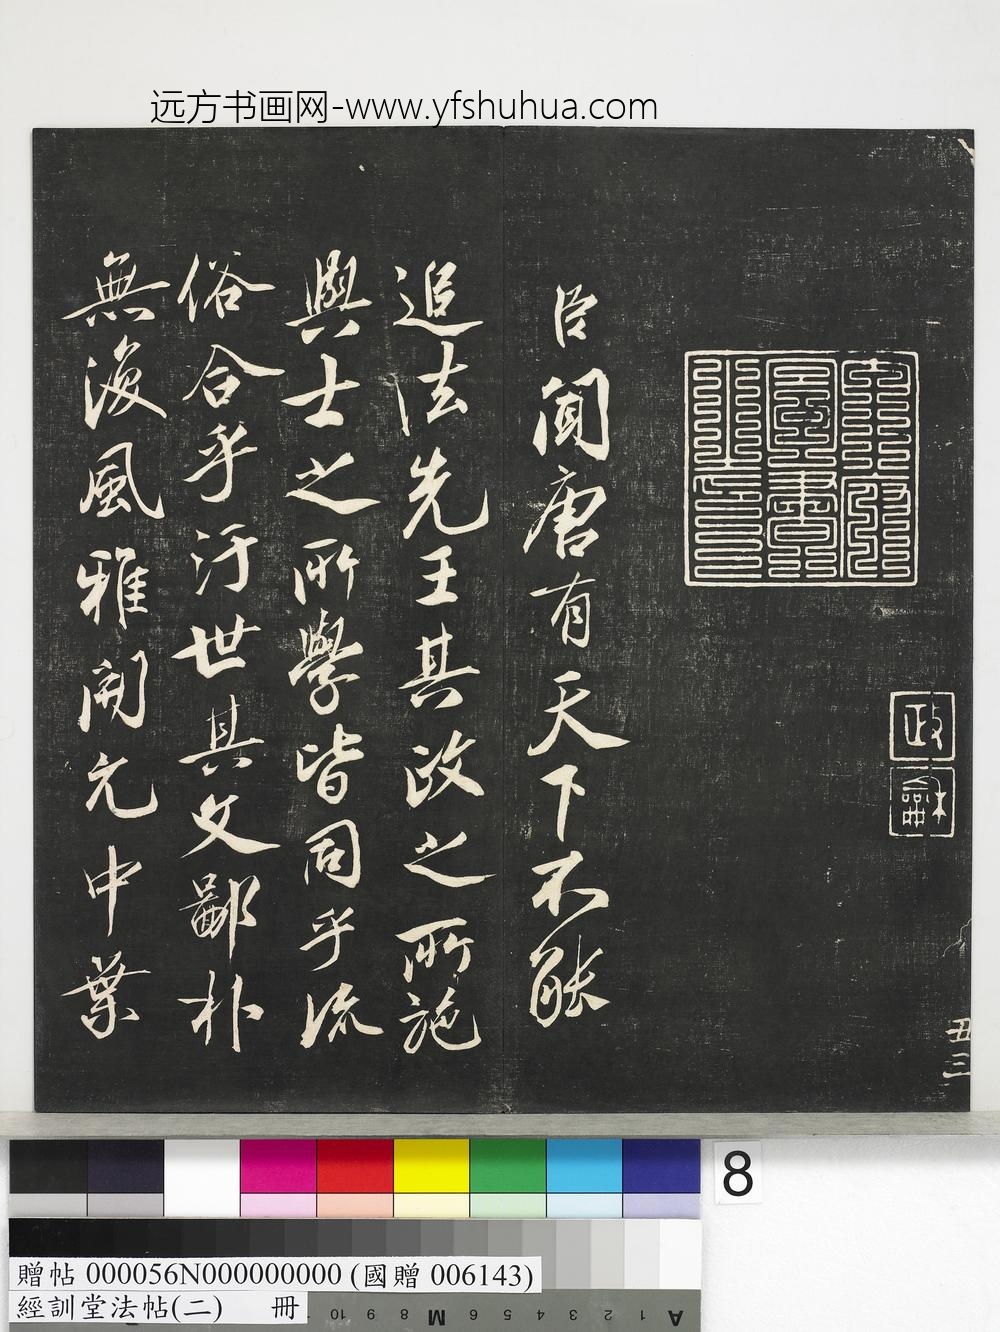 远方书画网-www.yfshuhua.com
臣聞唐有天下不能
追法先王其政之所施
與士之所學皆同乎流
俗合乎汙世其文鄙朴
無復風雅開元中葉
政
龢
丑三
8
贈帖 000056N000000000 (國贈 006143)
經訓堂法帖(二) 冊
A 1 2 3 4 5 6 M 8 9 10